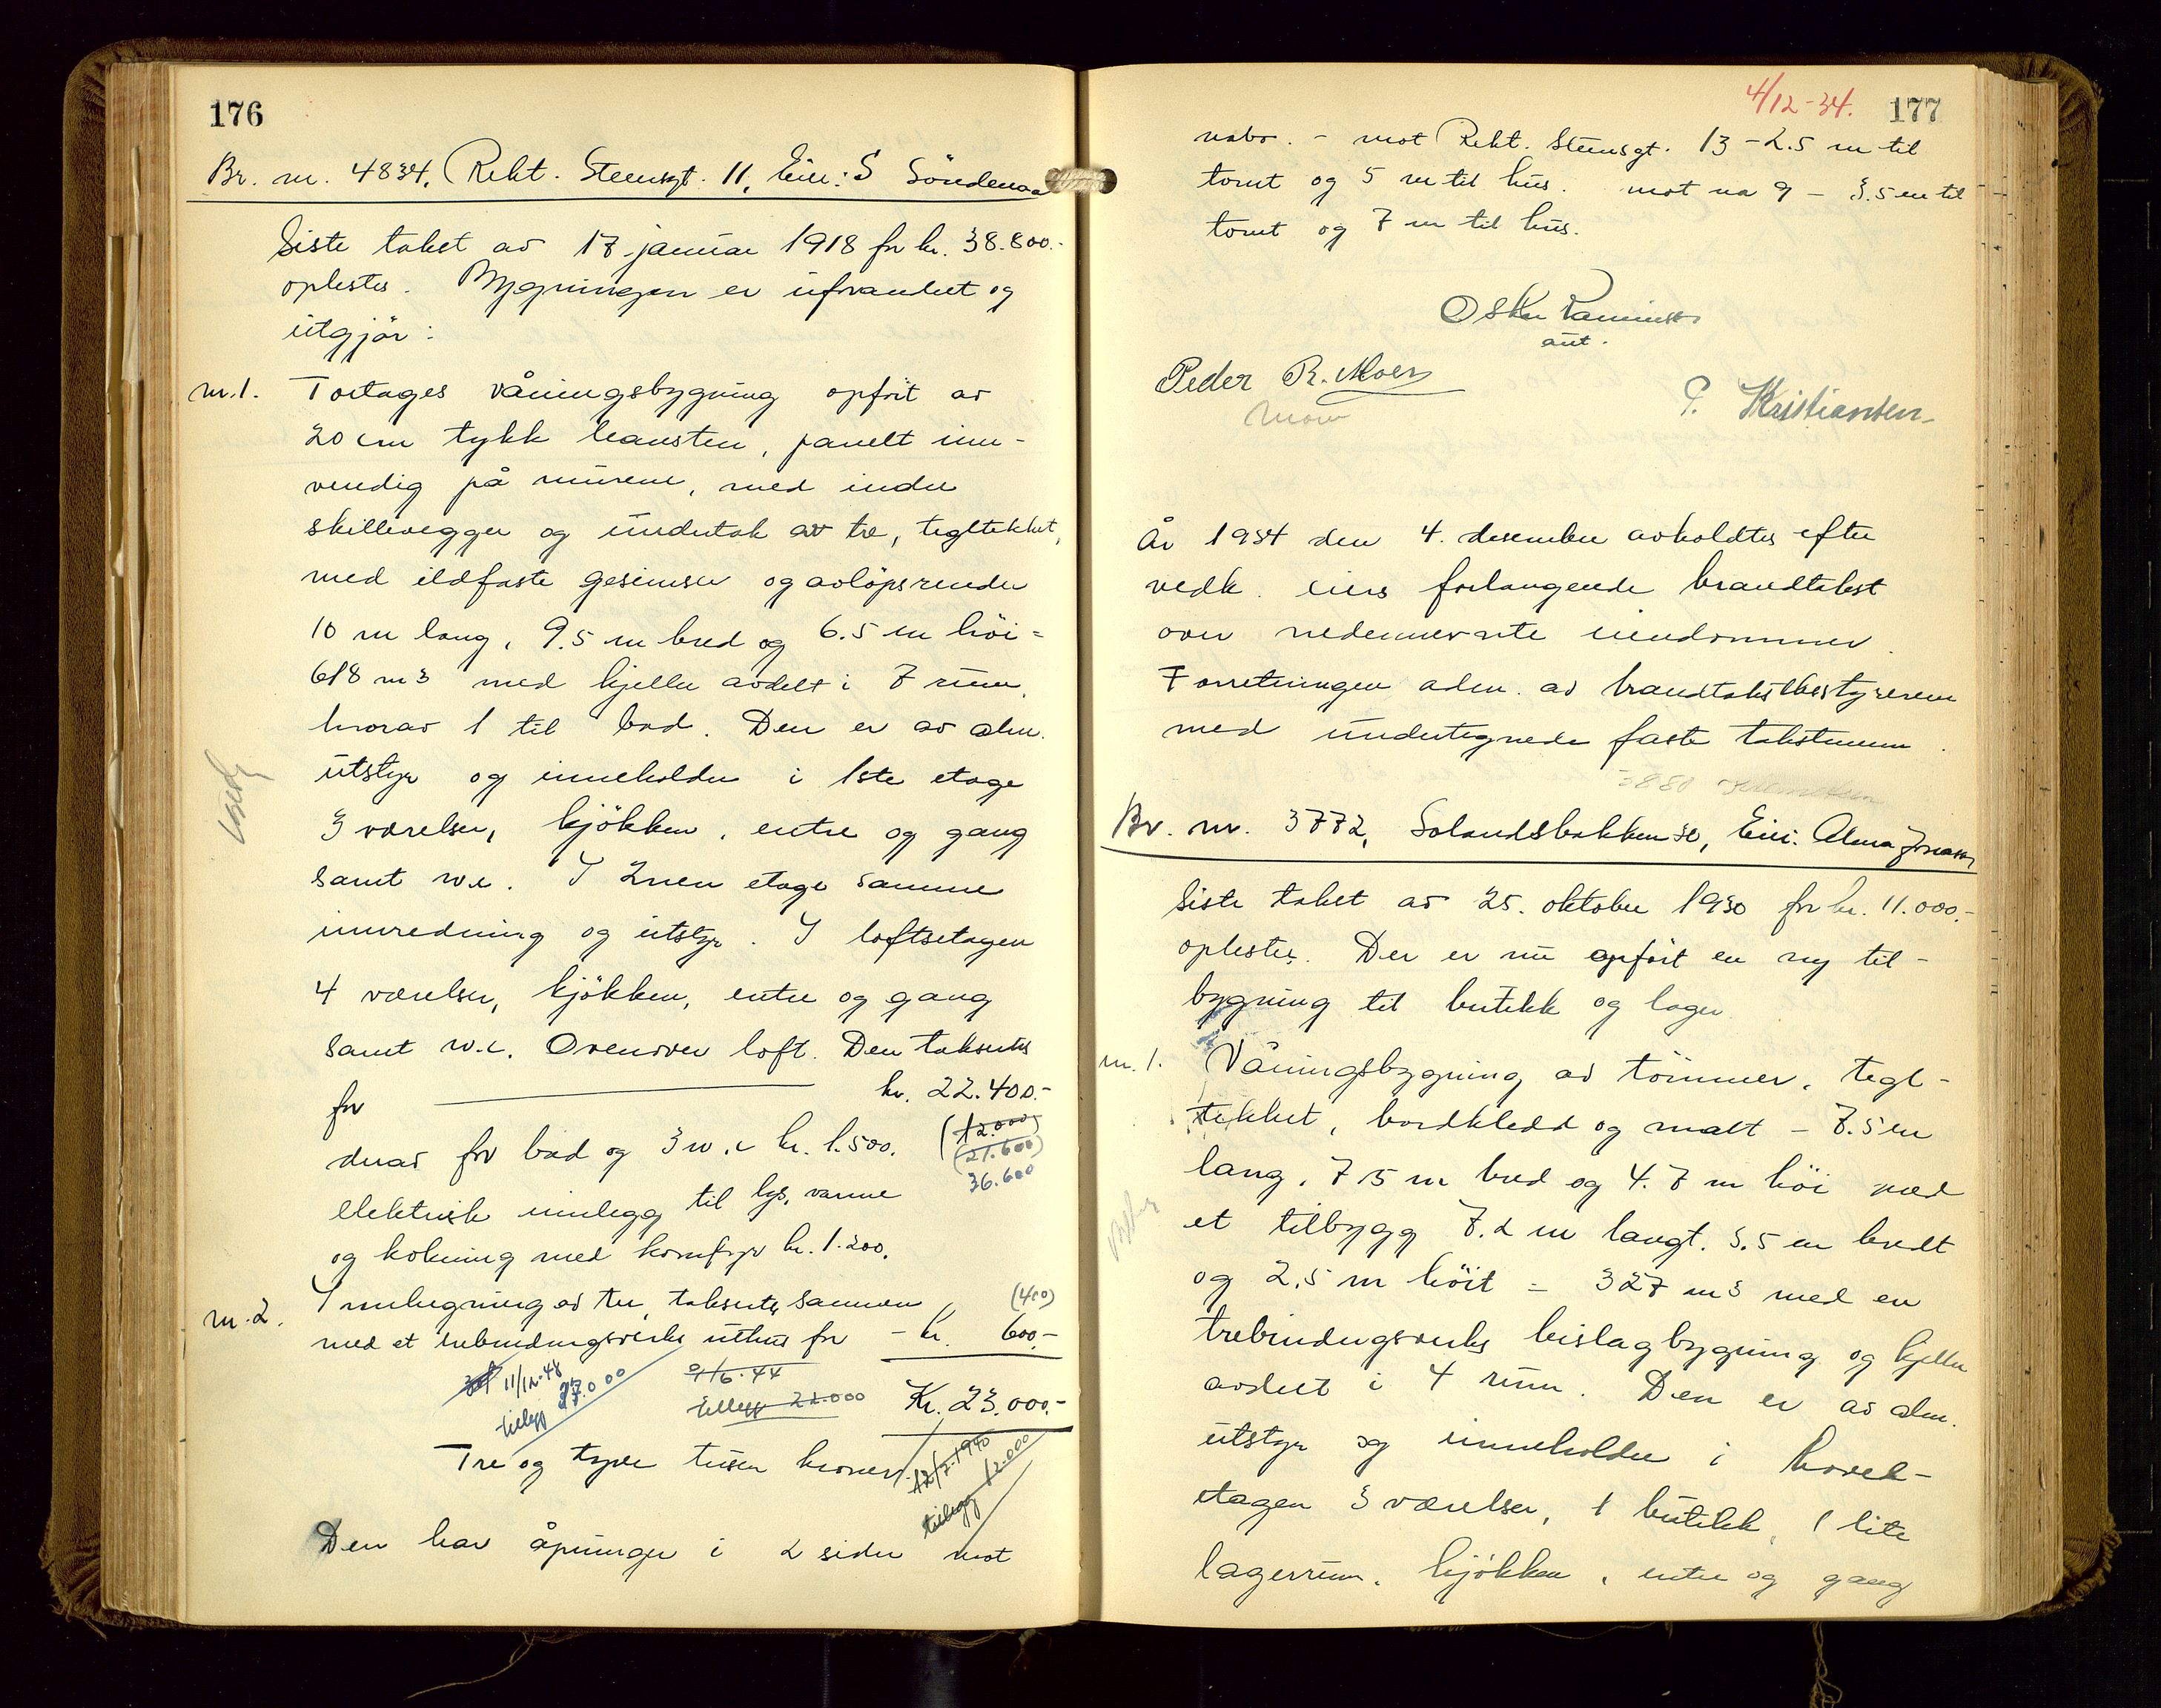 176
Br. nr. 4834, Rekt. Steensgt. 11, Eier: S Söndenaa
Siste takst av 17 januar 1918 for kr. 38.800.-
oplestes. Bygningen er uforandret og
utgjör:
nr. 1. Toetages våningsbygning opfört av
20 cm tykk leansten, panelt inn-
vendig på murene, med indre
skillevegger og undertak av tre, tegltekket,
med ildfaste gesimser og avlöpsrender
10 m lang, 9.5 m bred og 6.5 m höi =
618 m3 med kjeller avdelt i 7 rum,
hvorav 1 til bad. Den er av alm.
utstyr og inneholder i 1ste etage
3 værelser, kjökken, entre og gang
samt w.c. I 2nen etage samme
innredning og utstyr. I loftsetagen
4 værelser, kjökken, entre og gang
samt w.c. Ovenover loft. Den takseres
for kr. 22.400.-
(12.000)
derav for bad og 3 w.c kr. 1.500.
(21.600)
36.600
elektrisk innlegg til lys, varme
og kokning med komfyr kr. 1.200.
nr. 2. Innhegning av tre, takseres sammen (400)
med et trebindingsverks uthus for - kr. 600.-
11/12-48 9/6.44
tillegg 27.000 tillegg 22.000 Kr. 23.000.-
Tre og tyve tusen kroner.
12/2-1940
tillegg 12.000
Den har åpninger i 2 sider mot
4/12-34. 177
nabo. - mot Rekt. Steensgt. 13 - 2.5 m til
tomt og 5 m til hus. mot nr 9 - 3.5 m til
tomt og 7 m til hus.
aut.
Peder R. Moer
P. Kristiansen
År 1934 den 4. desember avholdtes efter
vedk. eiers forlangende brandtakst
over nedennevnte eiendommer.
Forretningen adm. av brandtakstbestyreren
med undertegnede faste takstmenn.
3880
Br. nr. 3772, Solandsbakken 30, Eier: Alma Jonassen
Siste takst av 25. oktober 1930 for kr. 11.000.-
oplestes. Der er nu opfört en ny til-
bygning til butikk og lager
nr. 1. Våningsbygning av tömmer, tegl-
tekket, bordkledd og malt - 7.5 m
lang, 7.5 m bred og 4.7 m höi med
et tilbygg 7.2 m langt. 3.5 m bredt
og 2.5 m höit = 327 m3 med en
trebindingsverks bislagbygning og kjeller
avdelt i 4 rum. Den er av alm.
utstyr og inneholder i hoved-
etagen 3 værelser, 1 butikk, 1 lite
lagerrum, kjökken, entre og gang